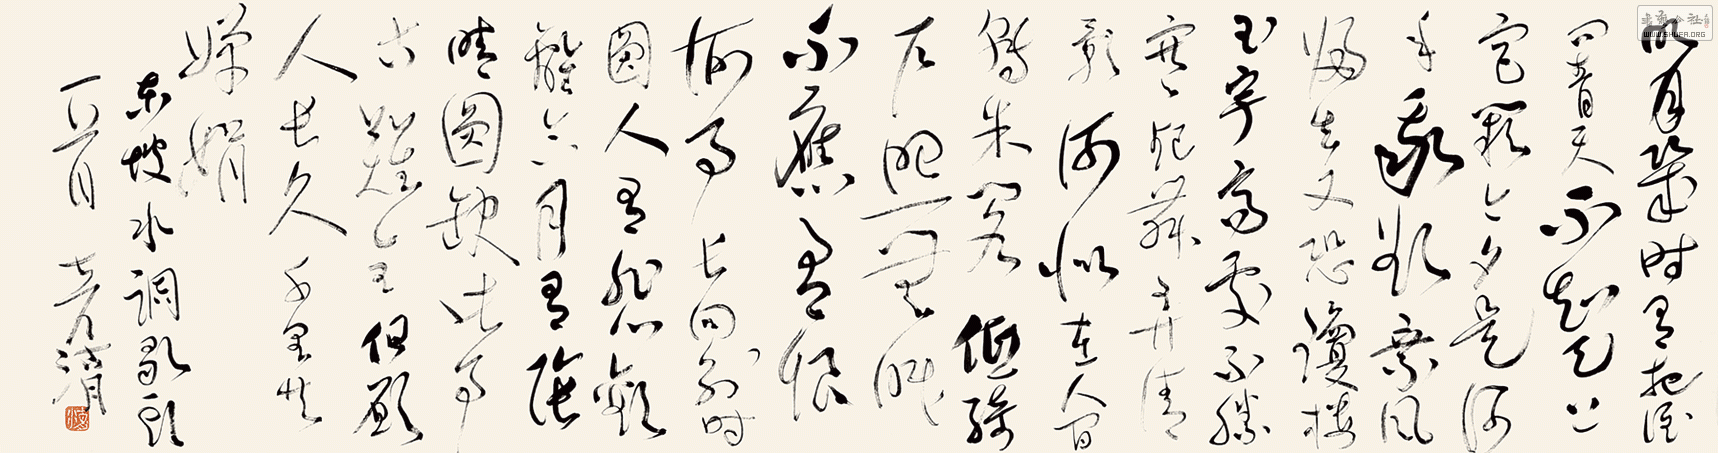 明月幾时有把酒
问青天不知天上
宫阙今夕是何
年我欲乘风
归去又恐瓊楼
玉宇高处不勝
寒起舞弄清
影何似在人间
转朱阁低绮
户照無眠
不應有恨
何事长向别时
圆人有悲歡
離合月有陰
晴圓缺此事
古難全但願
人长久千里共
婵娟
东坡水调歌头
WWW.SHUFA.ORG